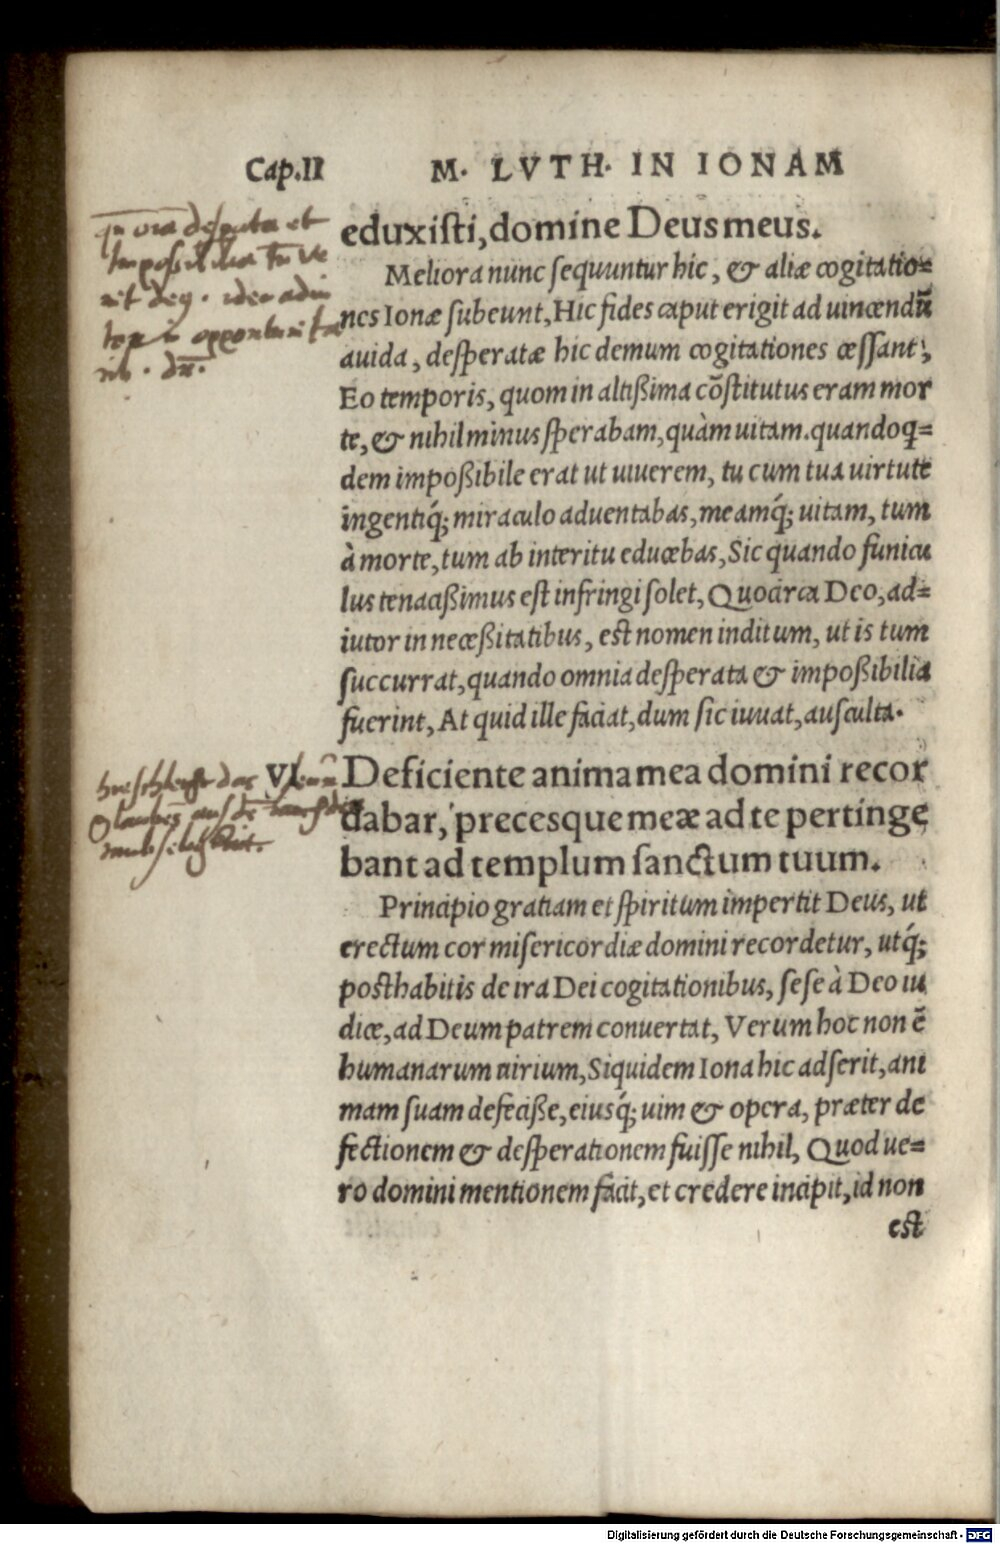 Cap.II M. LVTH. IN IONAM
eduxisti, domine Deus meus.
Meliora nunc sequuntur hic, & aliæ cogitatio=
nes Ionæ subeunt, Hic fides caput erigit ad uincendū
auida, desperatæ hic demum cogitationes cessant,
Eo temporis, quom in altißima cōstitutus eram mor
te, & nihil minus sperabam, quàm uitam. quandoq=
dem impoßibile erat ut uiuerem, tu cum tua uirtute
ingentiq́; miraculo aduentabas, meamq́; uitam, tum
à morte, tum ab interitu educebas, Sic quando funicu
lus tenacißimus est infringi solet, Quocirca Deo, ad=
iutor in neceßitatibus, est nomen inditum, ut is tum
succurrat, quando omnia desperata & impoßibilia
fuerint, At quid ille faciat, dum sic iuuat, ausculta.
VI Deficiente anima mea domini recor
dabar, precesque meæ ad te pertinge
bant ad templum sanctum tuum.
Principio gratiam et spiritum impertit Deus, ut
erectum cor misericordiæ domini recordetur, utq́;
posthabitis de ira Dei cogitationibus, sese à Deo iu
dice, ad Deum patrem conuertat, Verum hoc non ē
humanarum uirium, Siquidem Iona hic adserit, ani
mam suam defeciße, eiusq́; uim & opera, præter de
fectionem & desperationem fuisse nihil, Quod ue=
ro domini mentionem facit, et credere incipit, id non
est
desperata et
Glauben aus
Digitalisierung gefördert durch die Deutsche Forschungsgemeinschaft - DFG